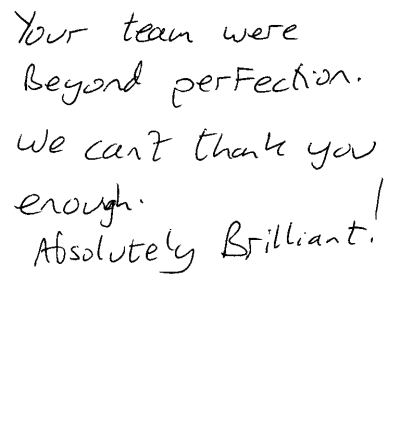 Your team were
Beyond perfection.
We can't thank you
enough.
Absolutely Brilliant!